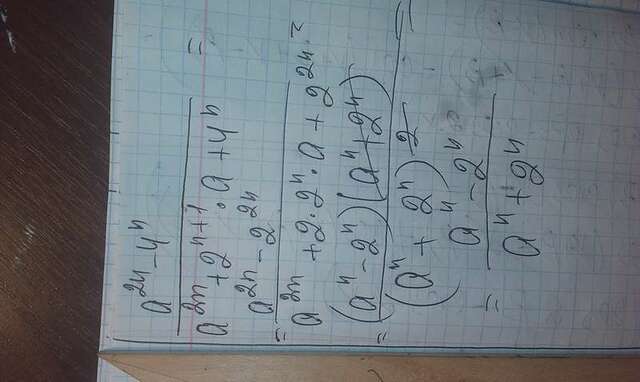 a^{2n} - 4^n
a^{2n} + 2^{n+1} · a + 4^n =
a^{2n} - 2^{2n}
= a^{2n} + 2 · 2^n · a + 2^{2n} =
(a^n - 2^n)(a^n + 2^n)
= (a^n + 2^n)^2 =
a^n - 2^n
= a^n + 2^n